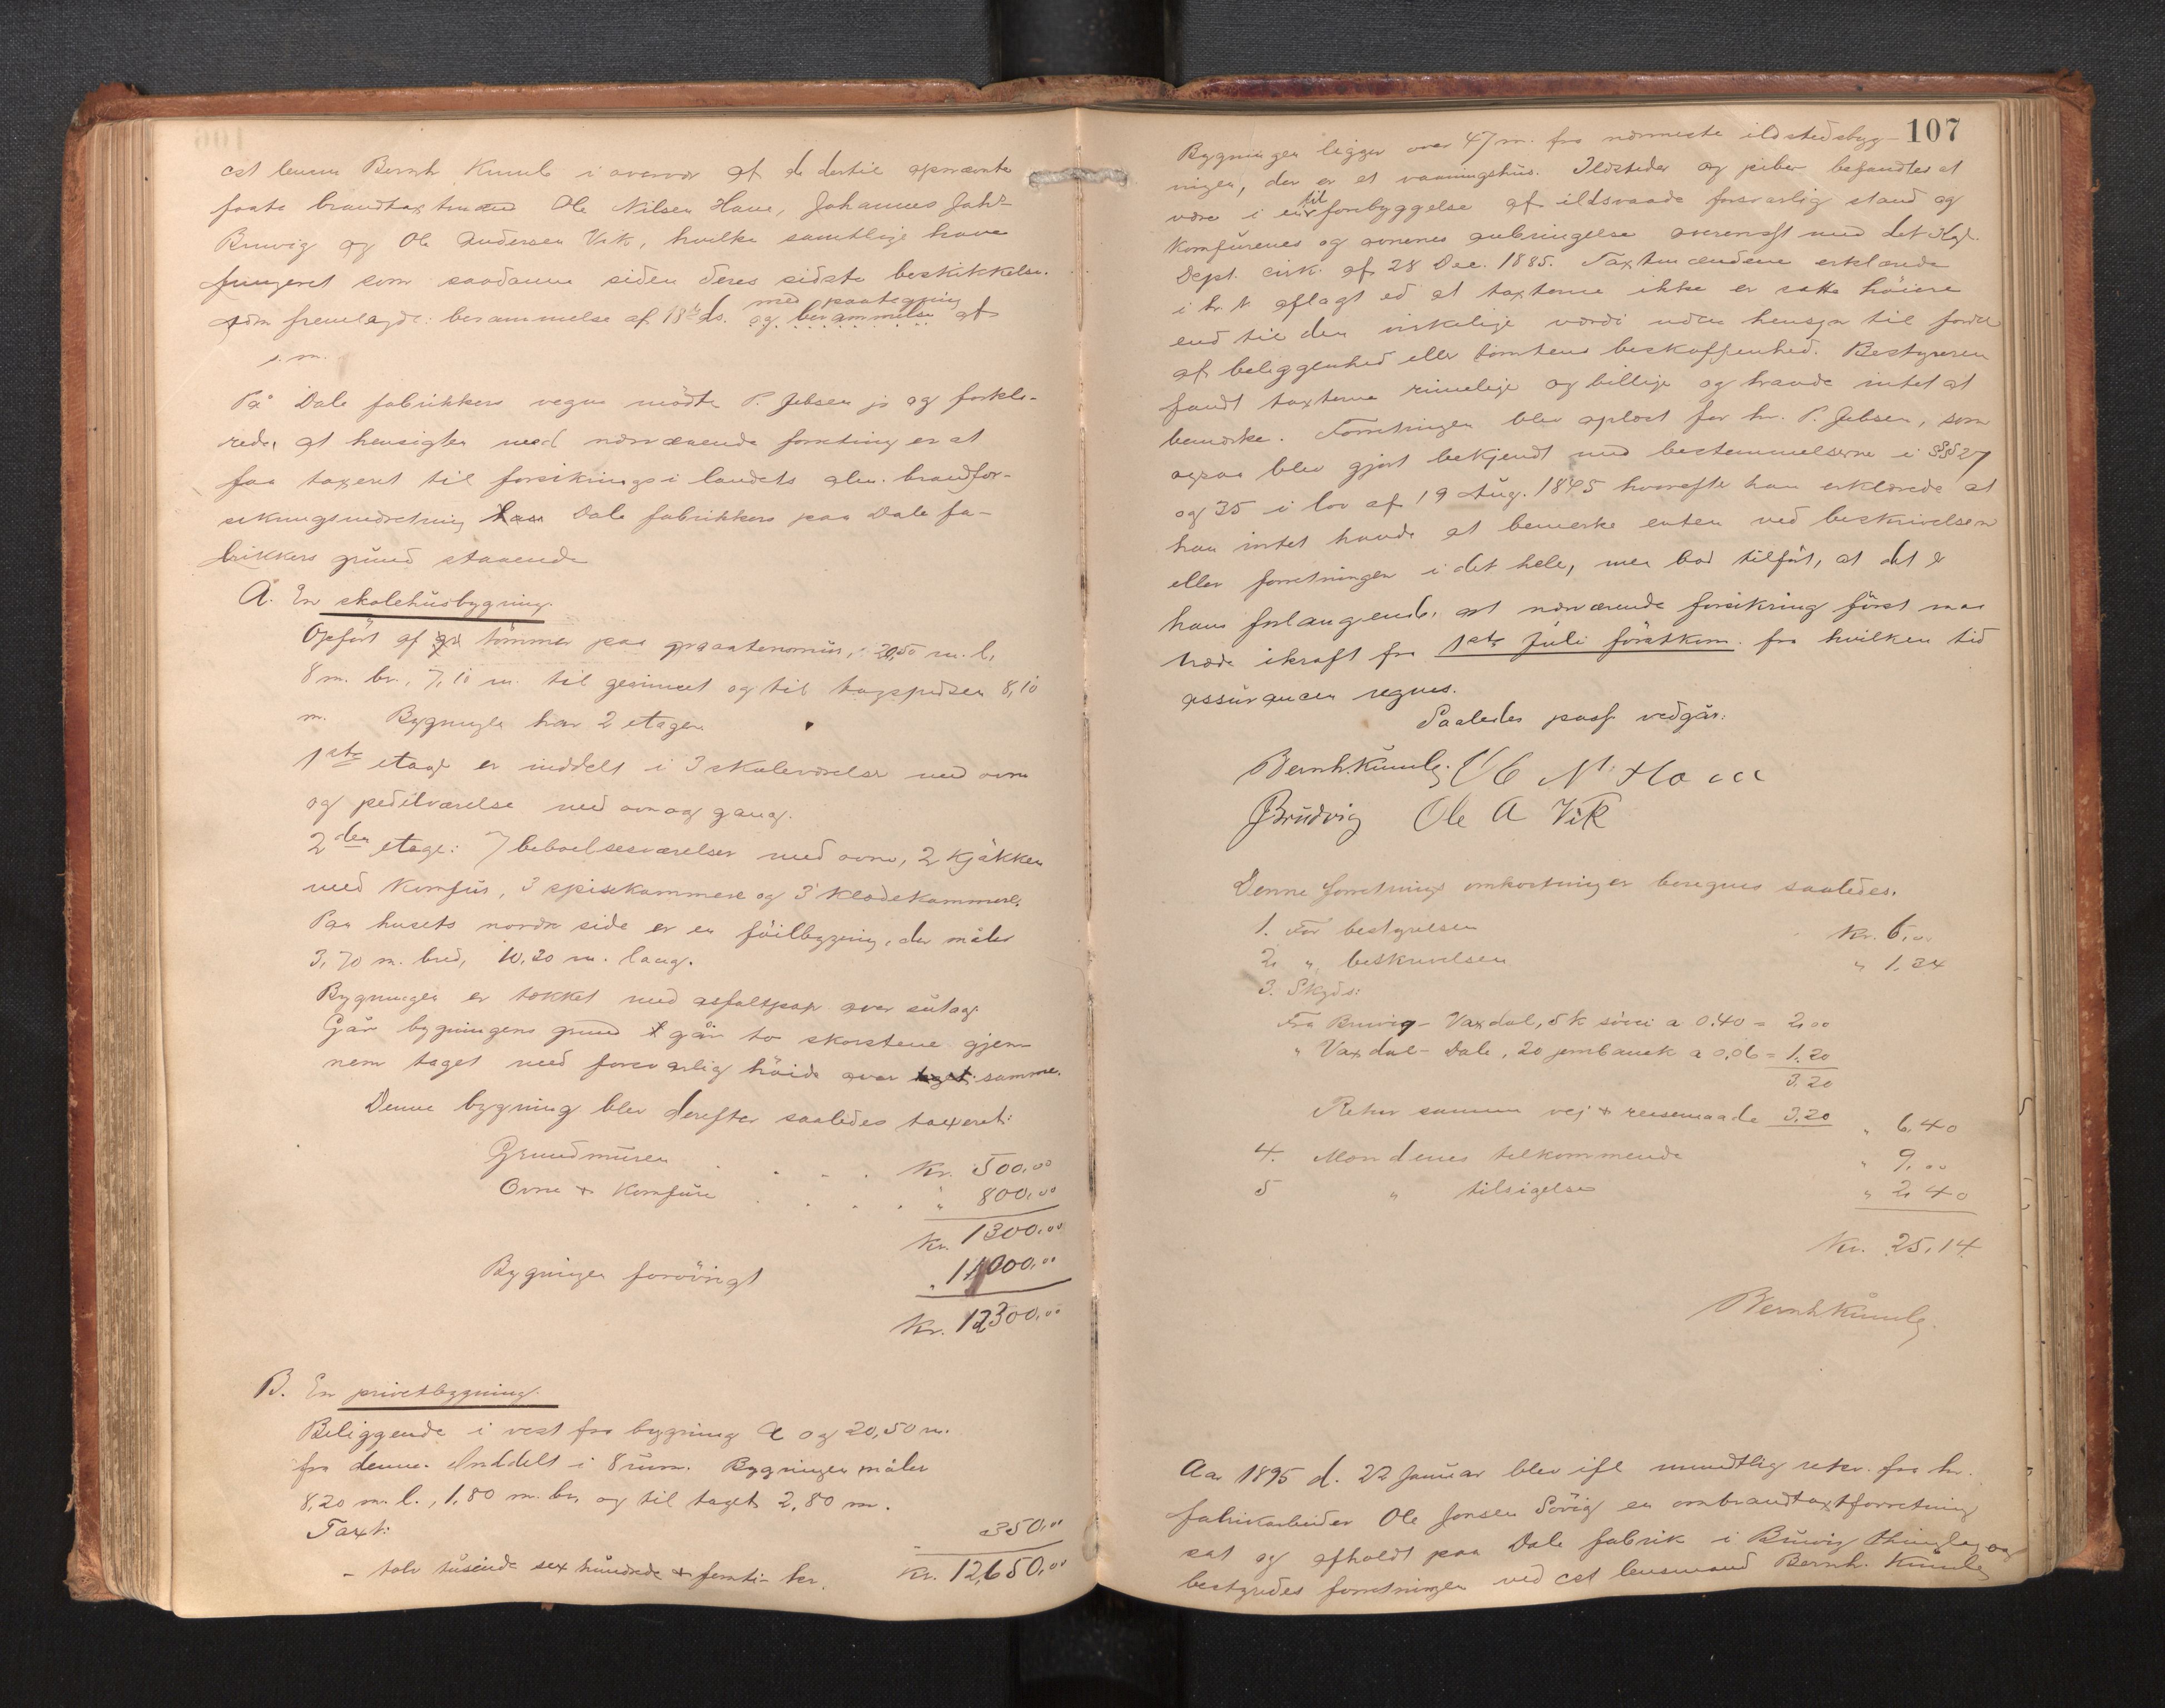 cst lensm Bernh Kumle i overvær af de dertil opnævnte
faste brandtaxtmænd Ole Nilsen Howe, Johannes Johs
Bruvig og Ole Andersen Vik, hvilke samtlige have
fungeret som saadanne siden deres sidste beskikkelse.
som fremlagde: berammelse af 18de ds. med paategning og berammelse af
s. m.
På Dale fabrikkers vegne mødte P. Jebsen jr og forkla-
rede, at hensigten med nærværende forretning er at
faa taxeret til forsikrings i landets alm. brandfor-
sikringsindretning Dale fabrikkers paa Dale fa-
brikkers grund staaende
A. En skolehusbygning.
Opført af tømmer paa graastensmur, 20,50 m. l,
8 m. br., 7,10 m. til gesimset og til tagspidsen 8,10
m. Bygningen har 2 etager
1ste etage er inddelt i 3 skoleværelser med ovn
og pedelværelse med ovn og gang.
2den etage: 7 beboelsesværelser med ovne, 2 kjøkken
med komfur, 3 spisekammere og 3 klædekammere.
Paa husets nordre side er en fløilbygning, der måler
3,70 m. bred, 10,20 m. lang.
Bygningen er tækket med asfaltpap over sutag.
Går bygningens grund går to skorstene gjen-
nem taget med forsvarlig høide over samme.
Denne bygning blev derefter saaledes taxeret:
Grundmuren . . . . Kr. 500,00
Ovne + komfure . . . . " 800,00
Kr. 1300,00
Bygningen forøvrigt " 11000,00
Kr. 12300,00
B. En privetbygning.
Beliggende i vest fra bygning A og 20,50 m.
fra denne. Inddelt i 8 rum. Bygningen måler
8,20 m. l., 1,80 m. br, og til taget 2,80 m.
Taxt: 350,00
- tolv tusinde sex hundrede + femti - kr. Kr. 12,650,00
107
Bygningen ligger over 47 m. fra nærmeste ildstedsbyg-
ningen, der er et vaaningshus. Ildsteder og piber befandtes at
være i en til forebyggelse af ildsvaade forsvarlig stand og
komfurenes og ovnenes anbringelse overensst med det Kgl.
Dept. cirk. af 28 Dec. 1885. Taxtmændene erklærede
i hr. t. aflagt ed at taxterne ikke er satte høiere
end til den virkelige værdi uden hensyn til fordel
af beliggenhed eller tomtens beskaffenhed. Bestyreren
fandt taxterne rimelige og billige og havde intet at
bemærke. Forretningen blev oplæst for hr. P. Jebsen, som
ogsaa blev gjort bekjendt med bestemmelserne i §§ 27
og 35 i lov af 19 Aug. 1845 hvorefter han erklærede at
han intet havde at bemerke enten ved beskrivelsen
eller forretningen i det hele, men bad tilført, at det er
hans forlangende, at nærværende forsikring først maa
træde ikraft fra 1ste Juli førstkom. fra hvilken tid
assurancen regnes.
Saaledes pass. vedgår:
Bernh. Kumle. Ole N. Howe
JBrudvig Ole A Vik
Denne forretnings omkostninger beregnes saaledes.
1. For bestyrelsen Kr. 6,00
2. " beskrivelsen " 1,34
3. Skyds:
Fra Bruvig - Vaxdal, 5 k sövei a 0.40 = 2,00
" Vaxdal - Dale, 20 jernbanek a 0,06 = 1,20
3,20
Retur samme vej + reisemaade 3,20 " 6,40
4. Mændenes tilkommende " 9,00
5 " tilsigelse " 2,40
Kr. 25,14
Bernh Kumle.
Aar 1895 d. 22 Januar blev ifl mundtlig rekv. fra hr.
fabrikarbeider Ole Jonsen Sörig en ombrandtaxtforretning
sat og afholdt paa Dale fabrik i Bruvig thinglag og
bestyredes forretningen ved cst lensmand Bernh. Kumle